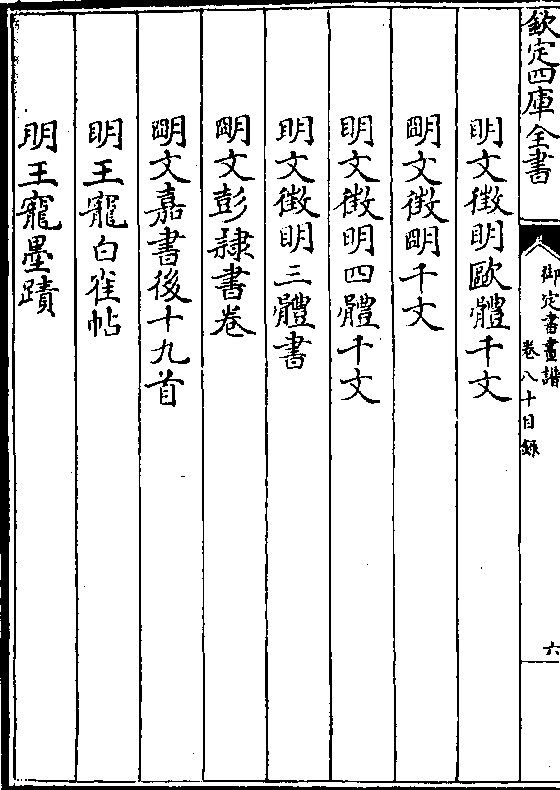 欽定四庫全書
御定書畫譜
卷八十目錄
六
明文徴明歐體千文
明文徴明千文
明文徴明四體千文
明文徴明三體書
明文彭隸書卷
明文嘉書後十九首
明王寵白雀帖
明王寵墨蹟